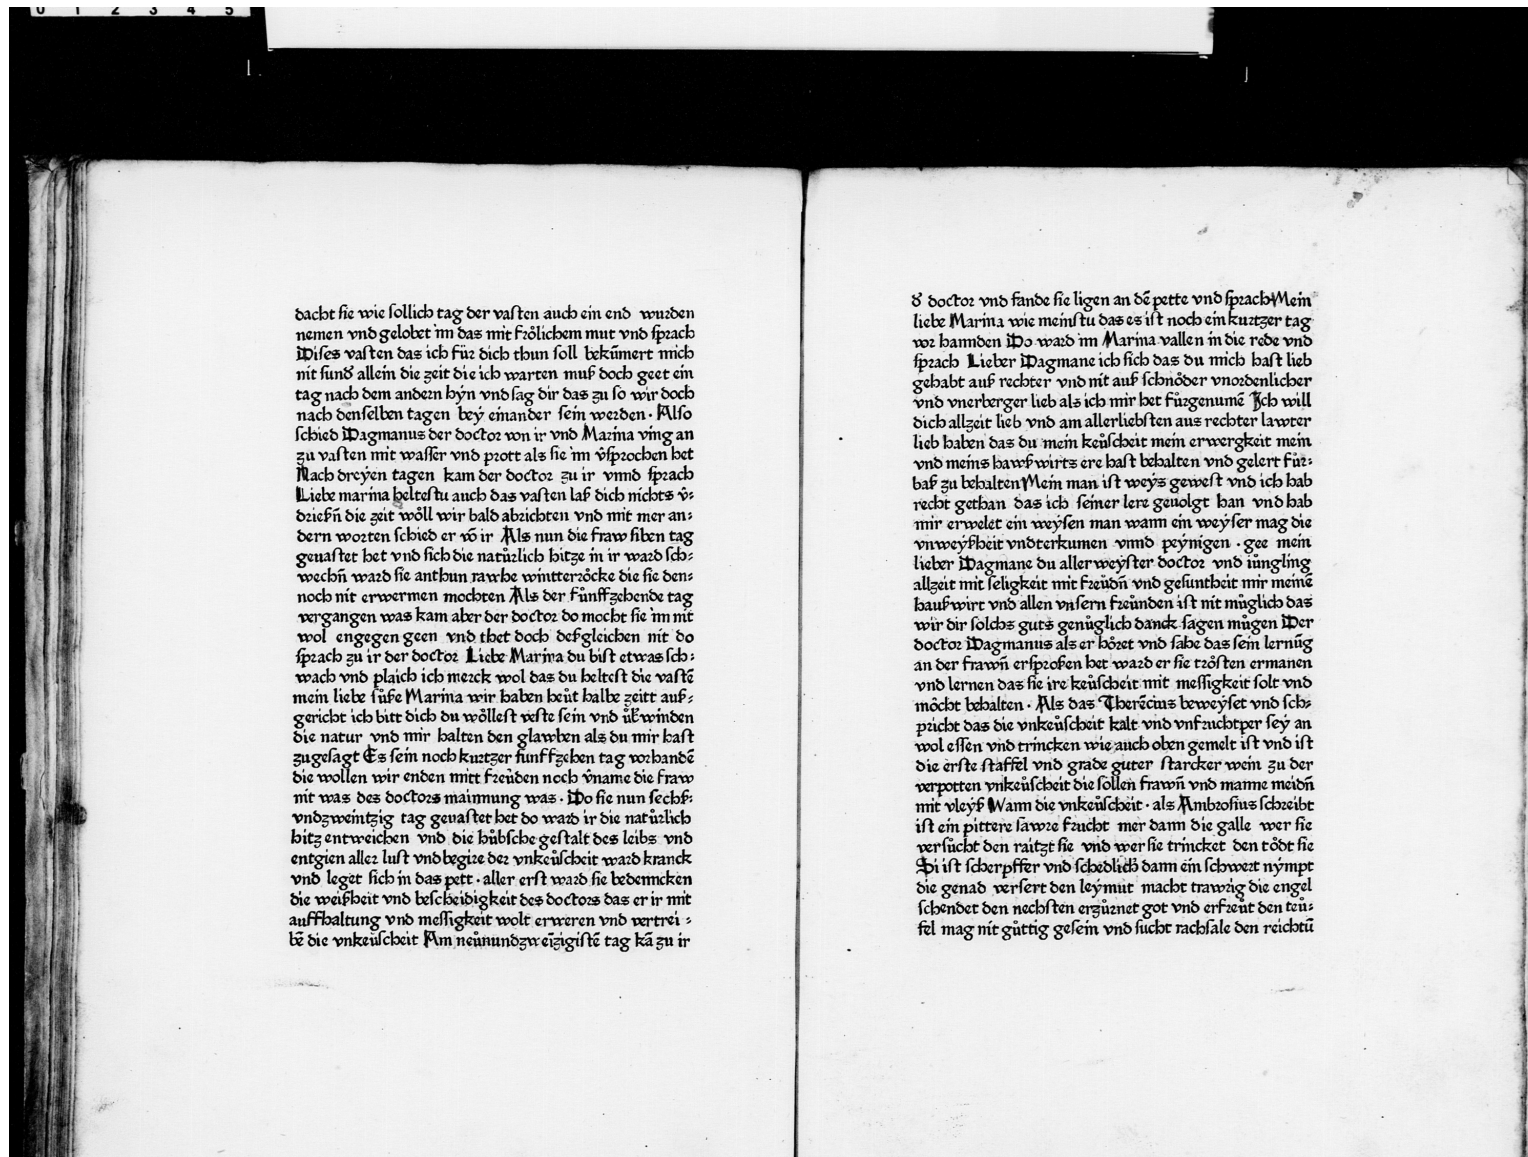 0 1 2 3 4 5
dacht sie wie sollich tag der vasten auch ein end wurden
nemen vnd gelobet im das mit frölichem mut vnd sprach
Dises vasten das ich für dich thun soll bekūmert mich
nit sund̕ allein die zeit die ich warten muß doch geet ein
tag nach dem andern hyn vnd sag dir das zu so wir doch
nach denselben tagen bey einander sein werden · Also
schied Dagmanus der doctor von ir vnd Marina ving an
zu vasten mit wasser vnd prott als sie im v̕sprochen het
Nach dreyen tagen kam der doctor zu ir vnnd sprach
Liebe marina heltestu auch das vasten laß dich nichts v̕⸗
drießn̄ die zeit wöll wir bald abrichten vnd mit mer an⸗
dern worten schied er vō ir Als nun die fraw siben tag
geuastet het vnd sich die natůrlich hitze in ir ward sch⸗
wechn̄ ward sie anthun rawhe wintterröcke die sie den⸗
noch nit erwermen mochten Als der fůnffzehende tag
vergangen was kam aber der doctor do mocht sie im nit
wol engegen geen vnd thet doch deßgleichen nit do
sprach zu ir der doctor Liebe Marina du bist etwas sch⸗
wach vnd plaich ich merck wol das du heltest die vastē
mein liebe sůße Marina wir haben heůt halbe zeitt auß⸗
gericht ich bitt dich du wöllest veste sein vnd üb̕winden
die natur vnd mir halten den glawben als du mir hast
zugesagt Es sein noch kurtzer funffzehen tag vorhandē
die wollen wir enden mitt freůden noch v̕name die fraw
nit was des doctors mainnung was · Do sie nun sechß⸗
vndzweintzig tag geuastet het do ward ir die natůrlich
hitz entweichen vnd die hůbsche gestalt des leibs vnd
entgien aller lust vnd begire der vnkeůscheit ward kranck
vnd leget sich in das pett · aller erst ward sie bedenncken
die weißheit vnd bescheidigkeit des doctors das er ir mit
auffhaltung vnd messigkeit wolt erweren vnd vertrei⸗
bē die vnkeuscheit Am neůnundzweīzigistē tag kā zu ir
d̕ doctor vnd fande sie ligen an dē pette vnd sprach Mein
liebe Marina wie meinstu das es ist noch ein kurtzer tag
vor hannden Do ward im Marina vallen in die rede vnd
sprach Lieber Dagmane ich sich das du mich hast lieb
gehabt auß rechter vnd nit auß schnöder vnordenlicher
vnd vnerberger lieb als ich mir het fůrgenumē Ich will
dich allzeit lieb vnd am allerliebsten aus rechter lawter
lieb haben das du mein keůscheit mein erwergkeit mein
vnd meins hawßwirts ere hast behalten vnd gelert fůr⸗
baß zu behalten Mein man ist weys gewest vnd ich hab
recht gethan das ich seiner lere geuolgt han vnd hab
mir erwelet ein weysen man wann ein weyser mag die
vnweyßheit vndterkumen vnnd peynigen · gee mein
lieber Dagmane du allerweyster doctor vnd iůngling
allzeit mit seligkeit mit freůdn̄ vnd gesuntheit mir meinē
haußwirt vnd allen vnsern freůnden ist nit můglich das
wir dir solchs guts genůglich danck sagen můgen Der
doctor Dagmanus als er höret vnd sahe das sein lernūg
an der frawn̄ ersproßen het ward er sie trösten ermanen
vnd lernen das sie ire keůscheit mit messigkeit solt vnd
möcht behalten · Als das Therēcius beweyset vnd sch⸗
pricht das die vnkeůscheit kalt vnd vnfruchtper sey an
wol essen vnd trincken wie auch oben gemelt ist vnd ist
die erste staffel vnd grade guter starcker wein zu der
verpotten vnkeůscheit die söllen frawn̄ vnd manne meidn̄
mit vleyß Wann die vnkeůscheit · als Ambrosius schreibt
ist ein pittere sawre frucht mer dann die galle wer sie
versůcht den raitzt sie vnd wer sie trincket den tödt sie
Si ist scherpffer vnd schedlich̕ dann ein schwert nympt
die genad versert den leymut macht trawrig die engel
schendet den nechsten erzůrnet got vnd erfreůt den teů⸗
fel mag nit gůttig gesein vnd sucht rachsale den reichtū